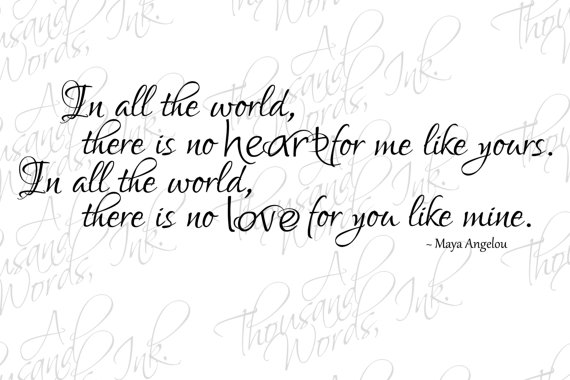 In all the world,
there is no heart for me like yours.
In all the world,
there is no love for you like mine.
~ Maya Angelou
A
Thousand
Words, Ink.
A
Thousand
Words, Ink.
A
Thousand
Words, Ink.
A
Thousand
Words, Ink.